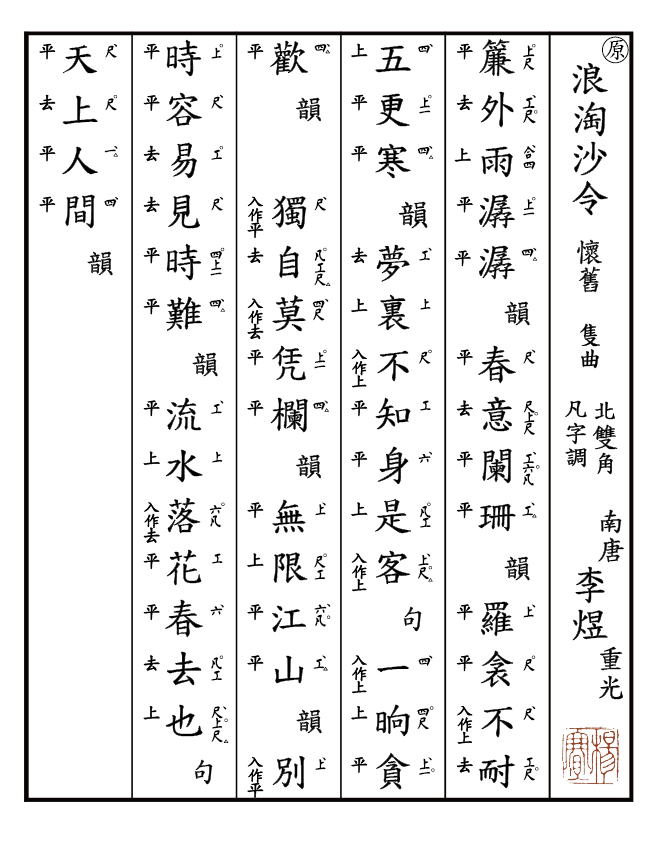 原
浪淘沙令 懷舊 隻曲
北雙角
凡字調
南唐 李煜 重光
上尺 工尺 合四 上一 四 尺 尺上尺 工六凡 工 上 尺 尺 工尺
簾外雨潺潺韻春意闌珊韻羅衾不耐
平 去 上 平 平 平 去 平 平 平 平 入作上 去
四 上一 四 工 上 尺 工 六 凡工 上尺 四 四尺 上一
五更寒韻夢裏不知身是客句一晌貪
上 平 平 去 上 入作上 平 平 上 入作上 入作上 上 平
四 尺 凡工尺 四尺 上一 四 上 尺工 六凡 工 上
歡韻獨自莫凭欄韻無限江山韻別
平 入作平 去 入作去 平 平 平 上 平 平 入作平
上 尺 工 尺 四上一 四 工 上 六凡 工 六 凡工 尺上尺
時容易見時難韻流水落花春去也句
平 平 去 去 平 平 平 上 入作去 平 平 去 上
尺 尺 一 四
天上人間韻
平 去 平 平